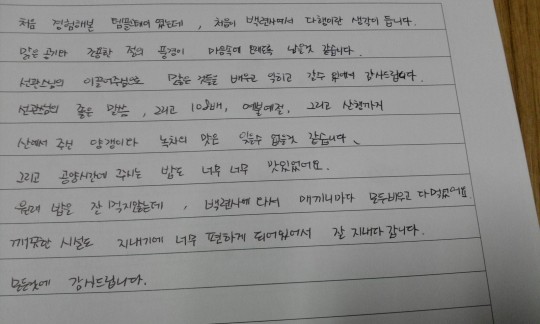 처음 경험해본 템플스테이 였는데, 처음이 백련사여서 다행이란 생각이 듭니다.
맑은 공기와 조용한 절의 풍경이 마음속에 오래도록 남을것 같습니다.
선관스님의 이끌어주심으로 많은 것들을 배우고 익히고 갈수 있어서 감사드립니다.
선관스님의 좋은 말씀, 그리고 108배, 예불예절, 그리고 산행까지
산에서 주신 양갱이와 녹차의 맛은 잊을수 없을것 같습니다.
그리고 공양시간에 주시는 밥도 너무 너무 맛있었어요.
원래 밥을 잘 먹지않는데, 백련사에 와서 매끼니마다 모두비우고 다먹었어요
깨끗한 시설도 지내기에 너무 편하게 되어있어서 잘 지내다 갑니다.
모든것에 감사드립니다.